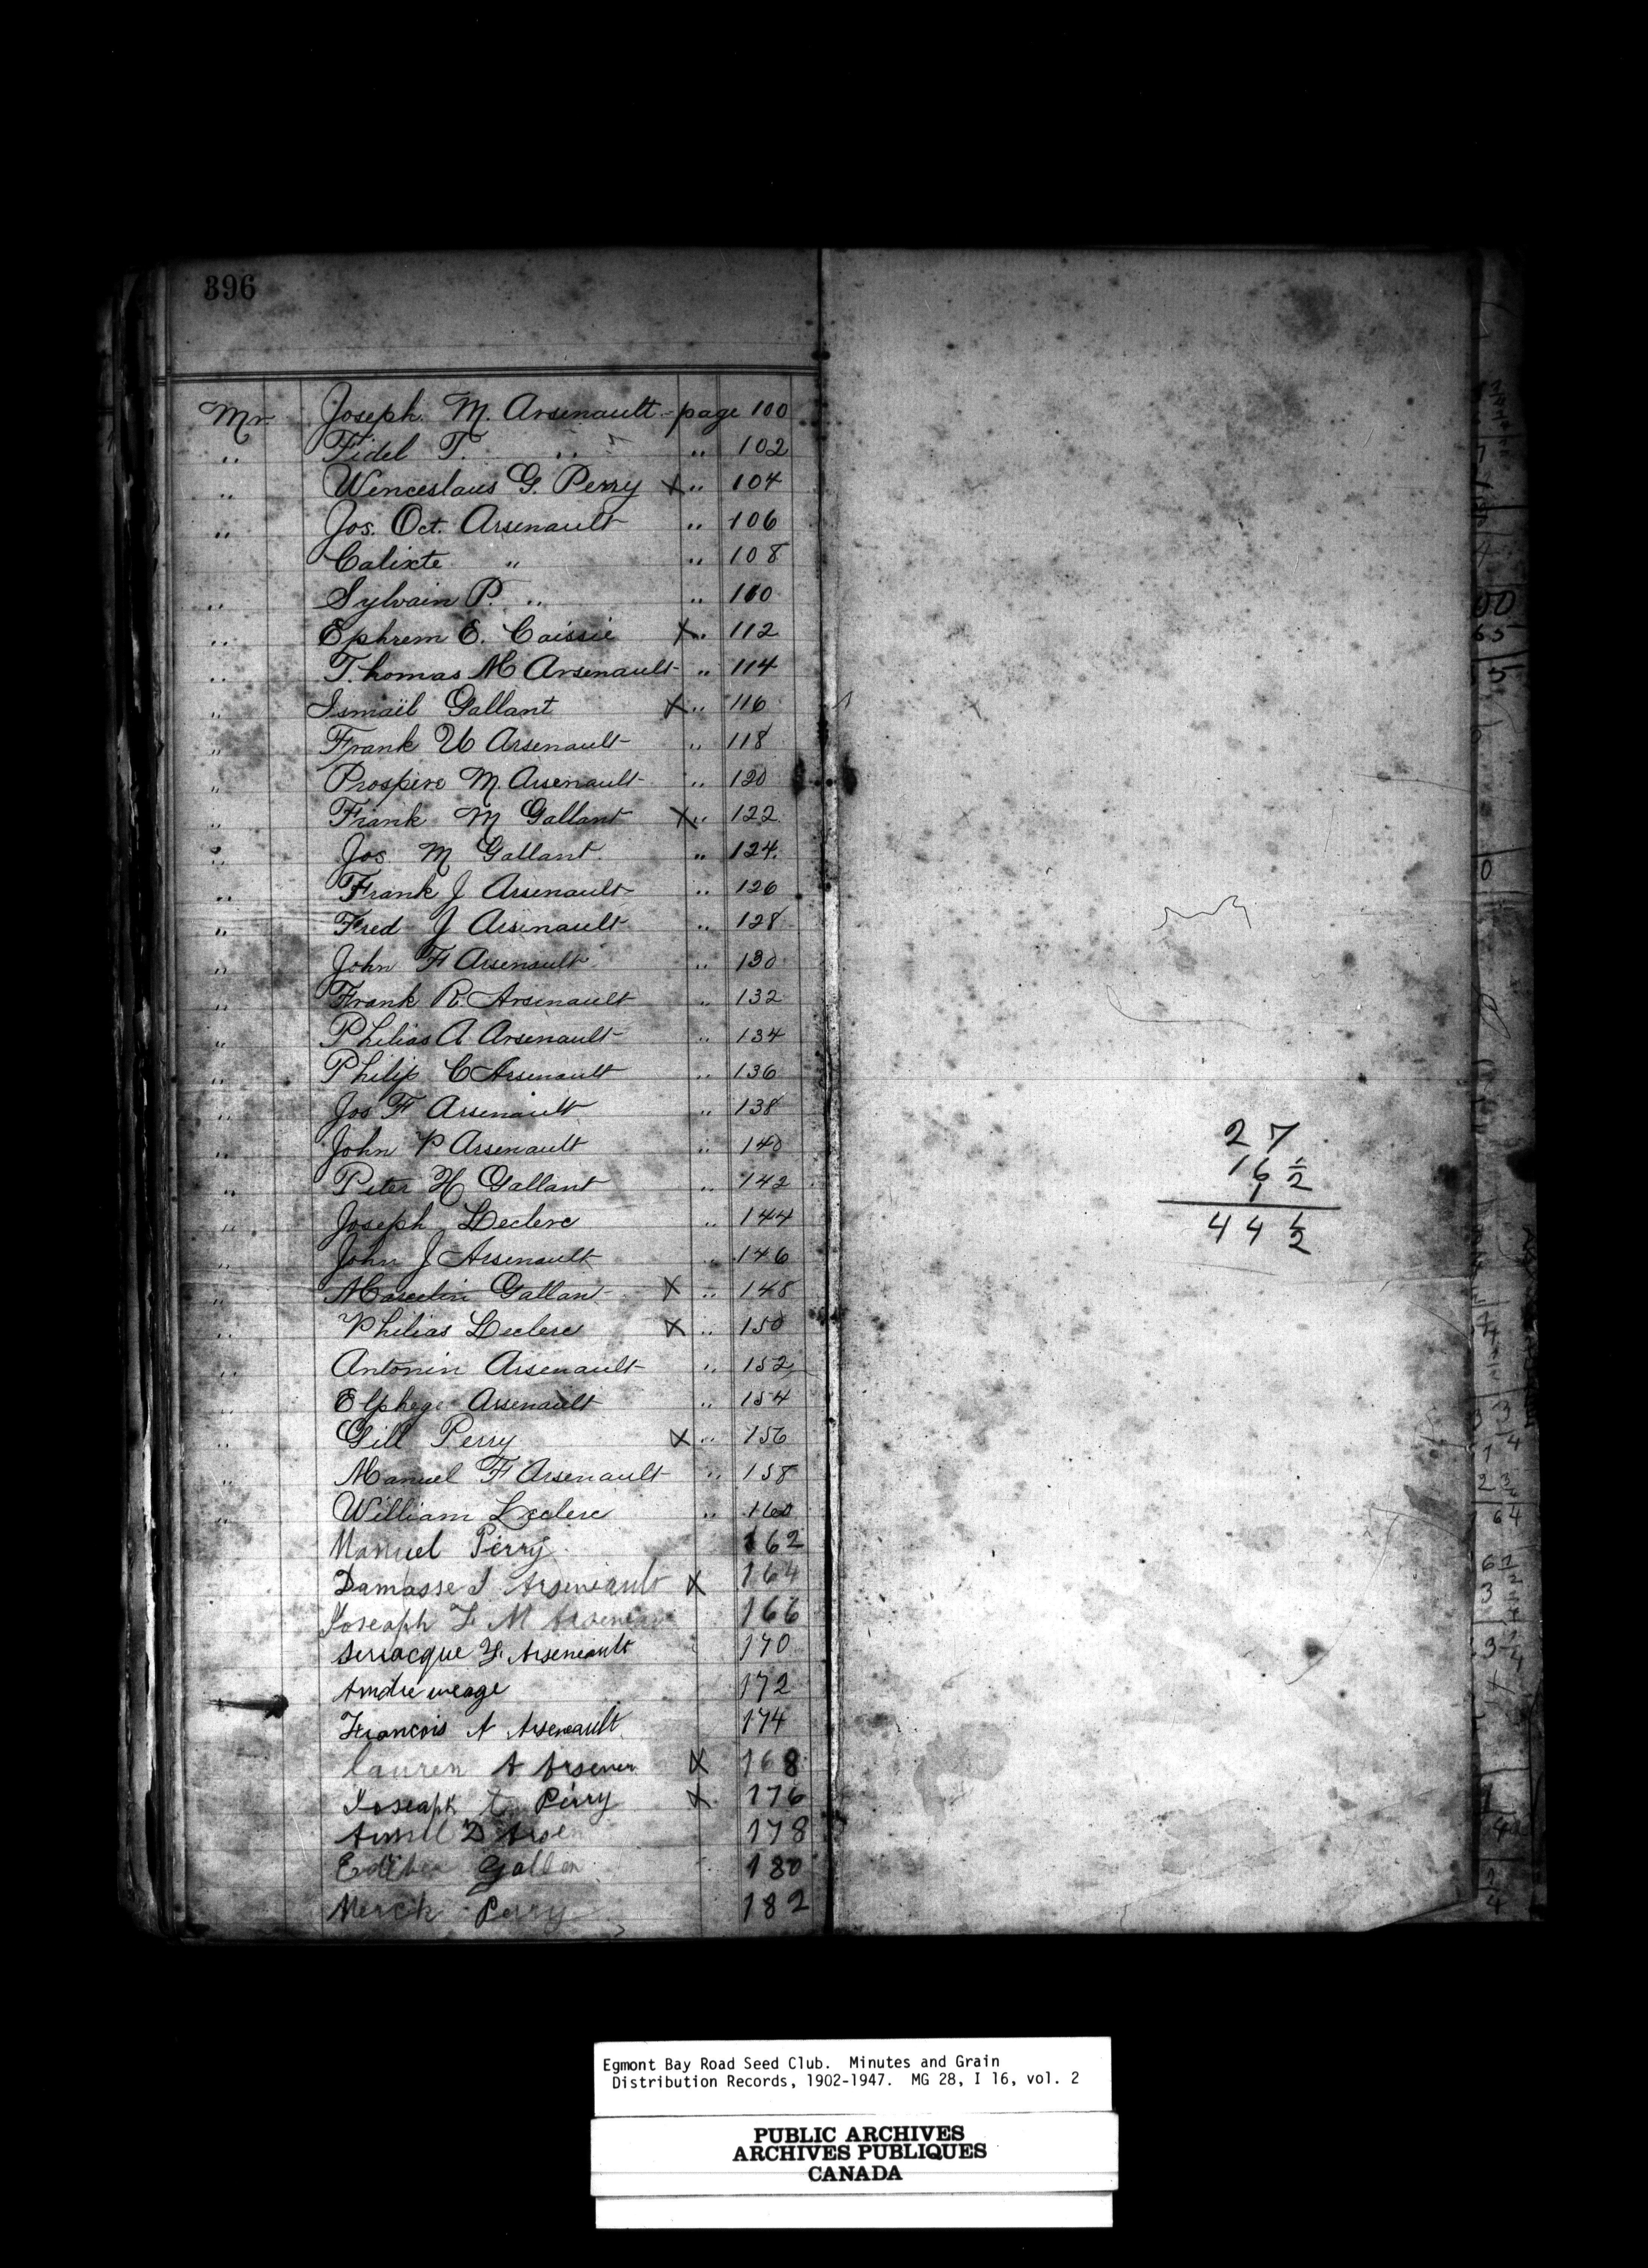 396
Mr Joseph M. Arsenault - page 100
" Fidel T. " " 102
" Wenceslaus G. Perry X " 104
" Jos. Oct. Arsenault " 106
Calixte " " 108
" Sylvain P. " " 110
" Ephrem E. Caissie X " 112
" Thomas M Arsenault " 114
" Ismaïl Gallant X " 116
" Frank U Arsenault " 118
" Prospere M. Arsenault " 120
" Frank M Gallant X " 122
" Jos M Gallant. " 124.
" Frank J Arsenault " 126
" Fred J Arsenault " 128
" John F Arsenault " 130
" Frank R. Arsenault " 132
" Philias A Arsenault " 134
" Philip C Arsenault " 136
" Jos F Arsenault " 138
" John P Arsenault " 140
" Peter H Gallant " 142
" Joseph Leclerc " 144
" John J Arsenault " 146
" Marcelin Gallan X " 148
" Philias Leclerc X " 150
" Antonin Arsenault " 152
" Elphege Arsenault " 154
" Gill Perry X " 156
" Manuel F Arsenault " 158
" William Leclerc " 160
Manuel Perry 162
Damasse J Arseneault X 164
Joseaph F M 166
F. Arseneault 170
Andre 172
Francois A Arseneault 174
lauren A Arsenen X 168
Joseaph Perry X 176
D 178
Gallan 180
Perry 182
27
16 1/2
44 1/2
Egmont Bay Road Seed Club. Minutes and Grain
Distribution Records, 1902-1947. MG 28, I 16, vol. 2
PUBLIC ARCHIVES
ARCHIVES PUBLIQUES
CANADA